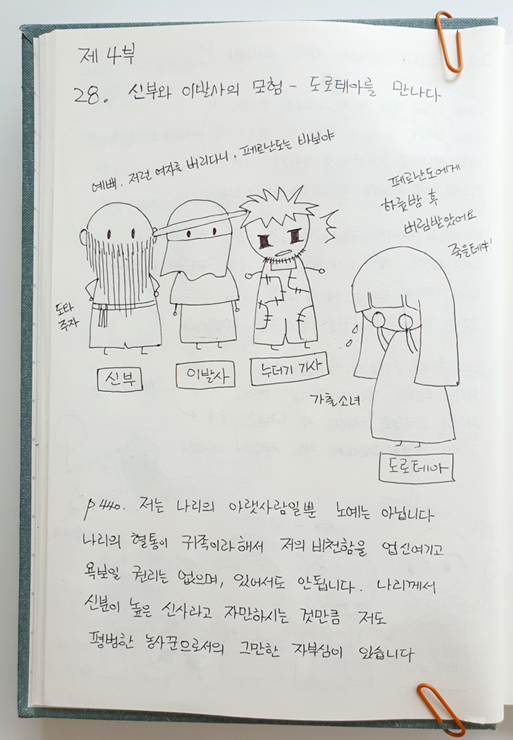 제 4부
28. 신부와 이발사의 모험 - 도로테아를 만나다
예뻐. 저런 여자를 버리다니. 페르난도는 바보야
페르난도에게
하룻밤 후
버림받았어요
죽을테야!
도라
주자
신부
이발사
누더기 기사
가출소녀
도로테아
p440. 저는 나리의 아랫사람일뿐 노예는 아닙니다
나리의 혈통이 귀족이라 해서 저의 비천함을 업신여기고
욕보일 권리는 없으며, 있어서도 안됩니다. 나리께서
신분이 높은 신사라고 자만하시는 것만큼 저도
평범한 농사꾼으로서의 그만한 자부심이 있습니다